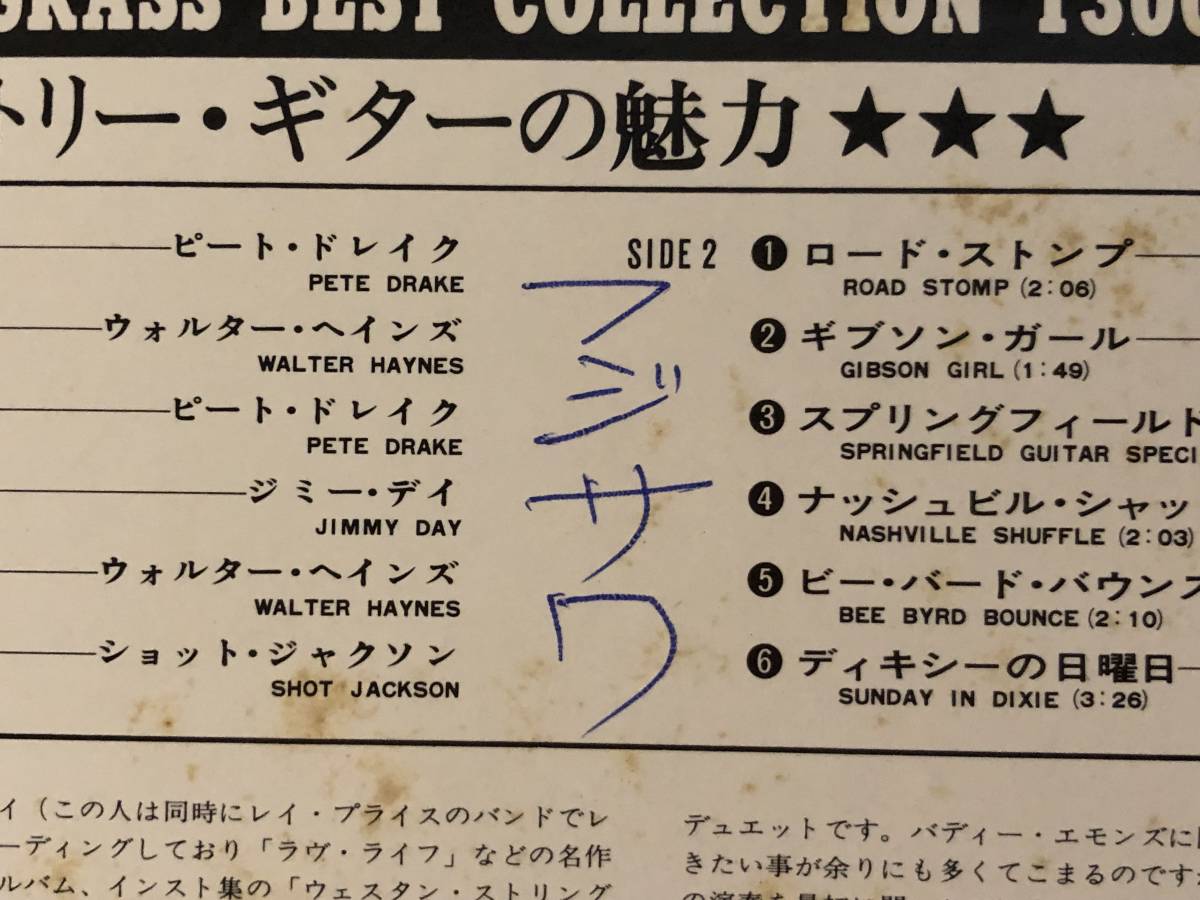 GRASS BEST COLLECTION 1300
トリー・ギターの魅力 ★★★
ピート・ドレイク
PETE DRAKE
ウォルター・ヘインズ
WALTER HAYNES
ピート・ドレイク
PETE DRAKE
ジミー・デイ
JIMMY DAY
ウォルター・ヘインズ
WALTER HAYNES
ショット・ジャクソン
SHOT JACKSON
マジサワ
SIDE 2
❶ ロード・ストンプ
ROAD STOMP (2:06)
❷ ギブソン・ガール
GIBSON GIRL (1:49)
❸ スプリングフィールド
SPRINGFIELD GUITAR SPECI
❹ ナッシュビル・シャッ
NASHVILLE SHUFFLE (2:03)
❺ ビー・バード・バウンス
BEE BYRD BOUNCE (2:10)
❻ ディキシーの日曜日
SUNDAY IN DIXIE (3:26)
イ（この人は同時にレイ・プライスのバンドでレ
ーディングしており「ラヴ・ライフ」などの名作
ルバム、インスト集の「ウェスタン・ストリング
デュエットです。バディー・エモンズに
きたい事が余りにも多くてこまるのですが